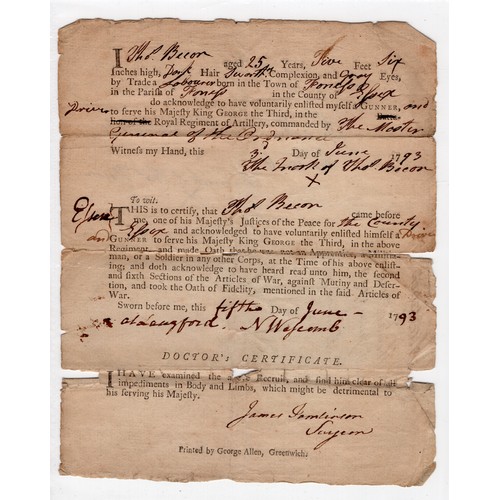 I Thos. Becon aged 25 Years, Five Feet Six
Inches high, Dark Hair Swarthy Complexion, and Gray Eyes,
by Trade a Labourer born in the Town of
in the Parish of in the County of Essex
do acknowledge to have voluntarily enlisted myself a GUNNER, and
Driver to serve his Majesty KING GEORGE the Third, in the
Royal Regiment of Artillery, commanded by The Master
General of the Ordnance
Witness my Hand, this 3 Day of June 1793
The Mark of Thos. Becon
X
To wit.
Essex THIS is to certify, that Thos. Becon came before
me, one of his Majesty's Justices of the Peace for the County
Essex and acknowledged to have voluntarily enlisted himself a
and Driver GUNNER to serve his Majesty KING GEORGE the Third, in the above
Regiment, and made Oath that he was not an Apprentice, a Militia-
man, or a Soldier in any other Corps, at the Time of his above enlist-
ing; and doth acknowledge to have heard read unto him, the second
and sixth Sections of the Articles of War, against Mutiny and Deser-
tion, and took the Oath of Fidelity, mentioned in the said Articles of
War.
Sworn before me, this fifth Day of June 1793
at Langford. N Wescomb
DOCTOR's CERTIFICATE.
I HAVE examined the above Recruit, and find him clear of all
impediments in Body and Limbs, which might be detrimental to
his serving his Majesty.
James Tomlinson
Surgeon
Printed by George Allen, Greenwich.